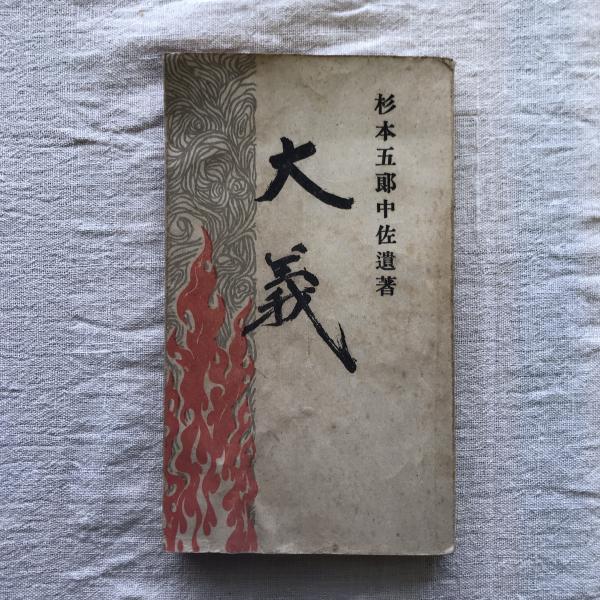 杉本五郎中佐遺著
大義